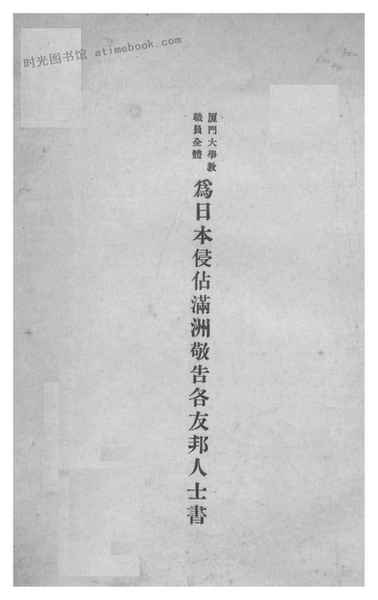 时光图书馆 atimebook.com
厦門大學教
職員全體
為日本侵佔滿洲敬告各友邦人士書